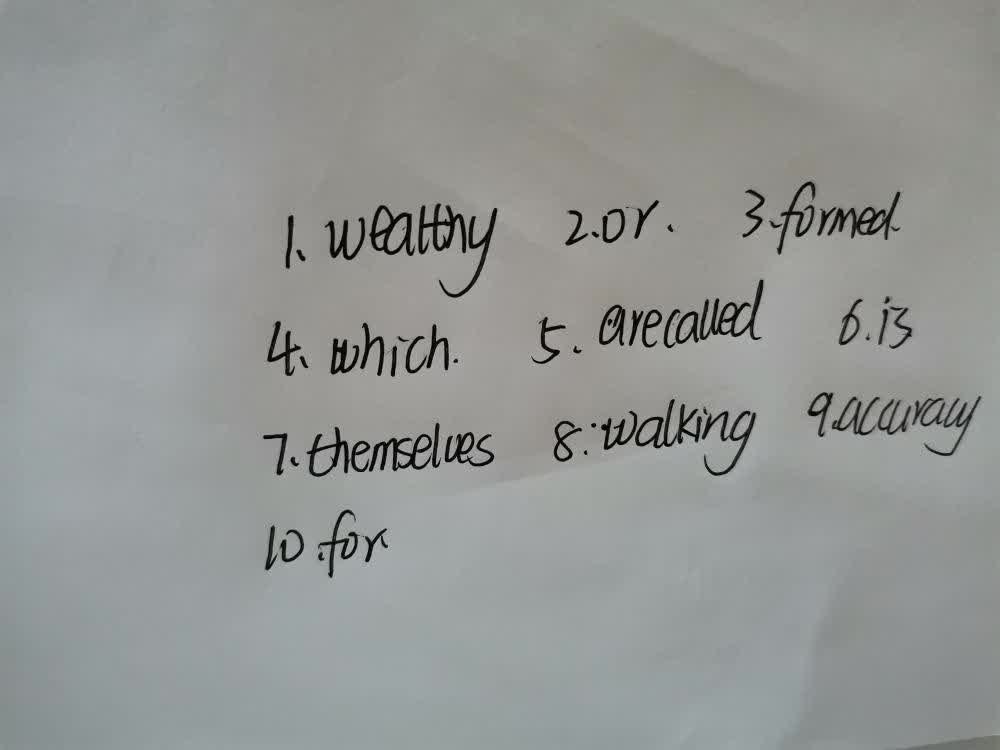 1. wealthy 2. or. 3. formed.
4. which. 5. are called 6. is
7. themselves 8. walking 9. accuracy
10. for